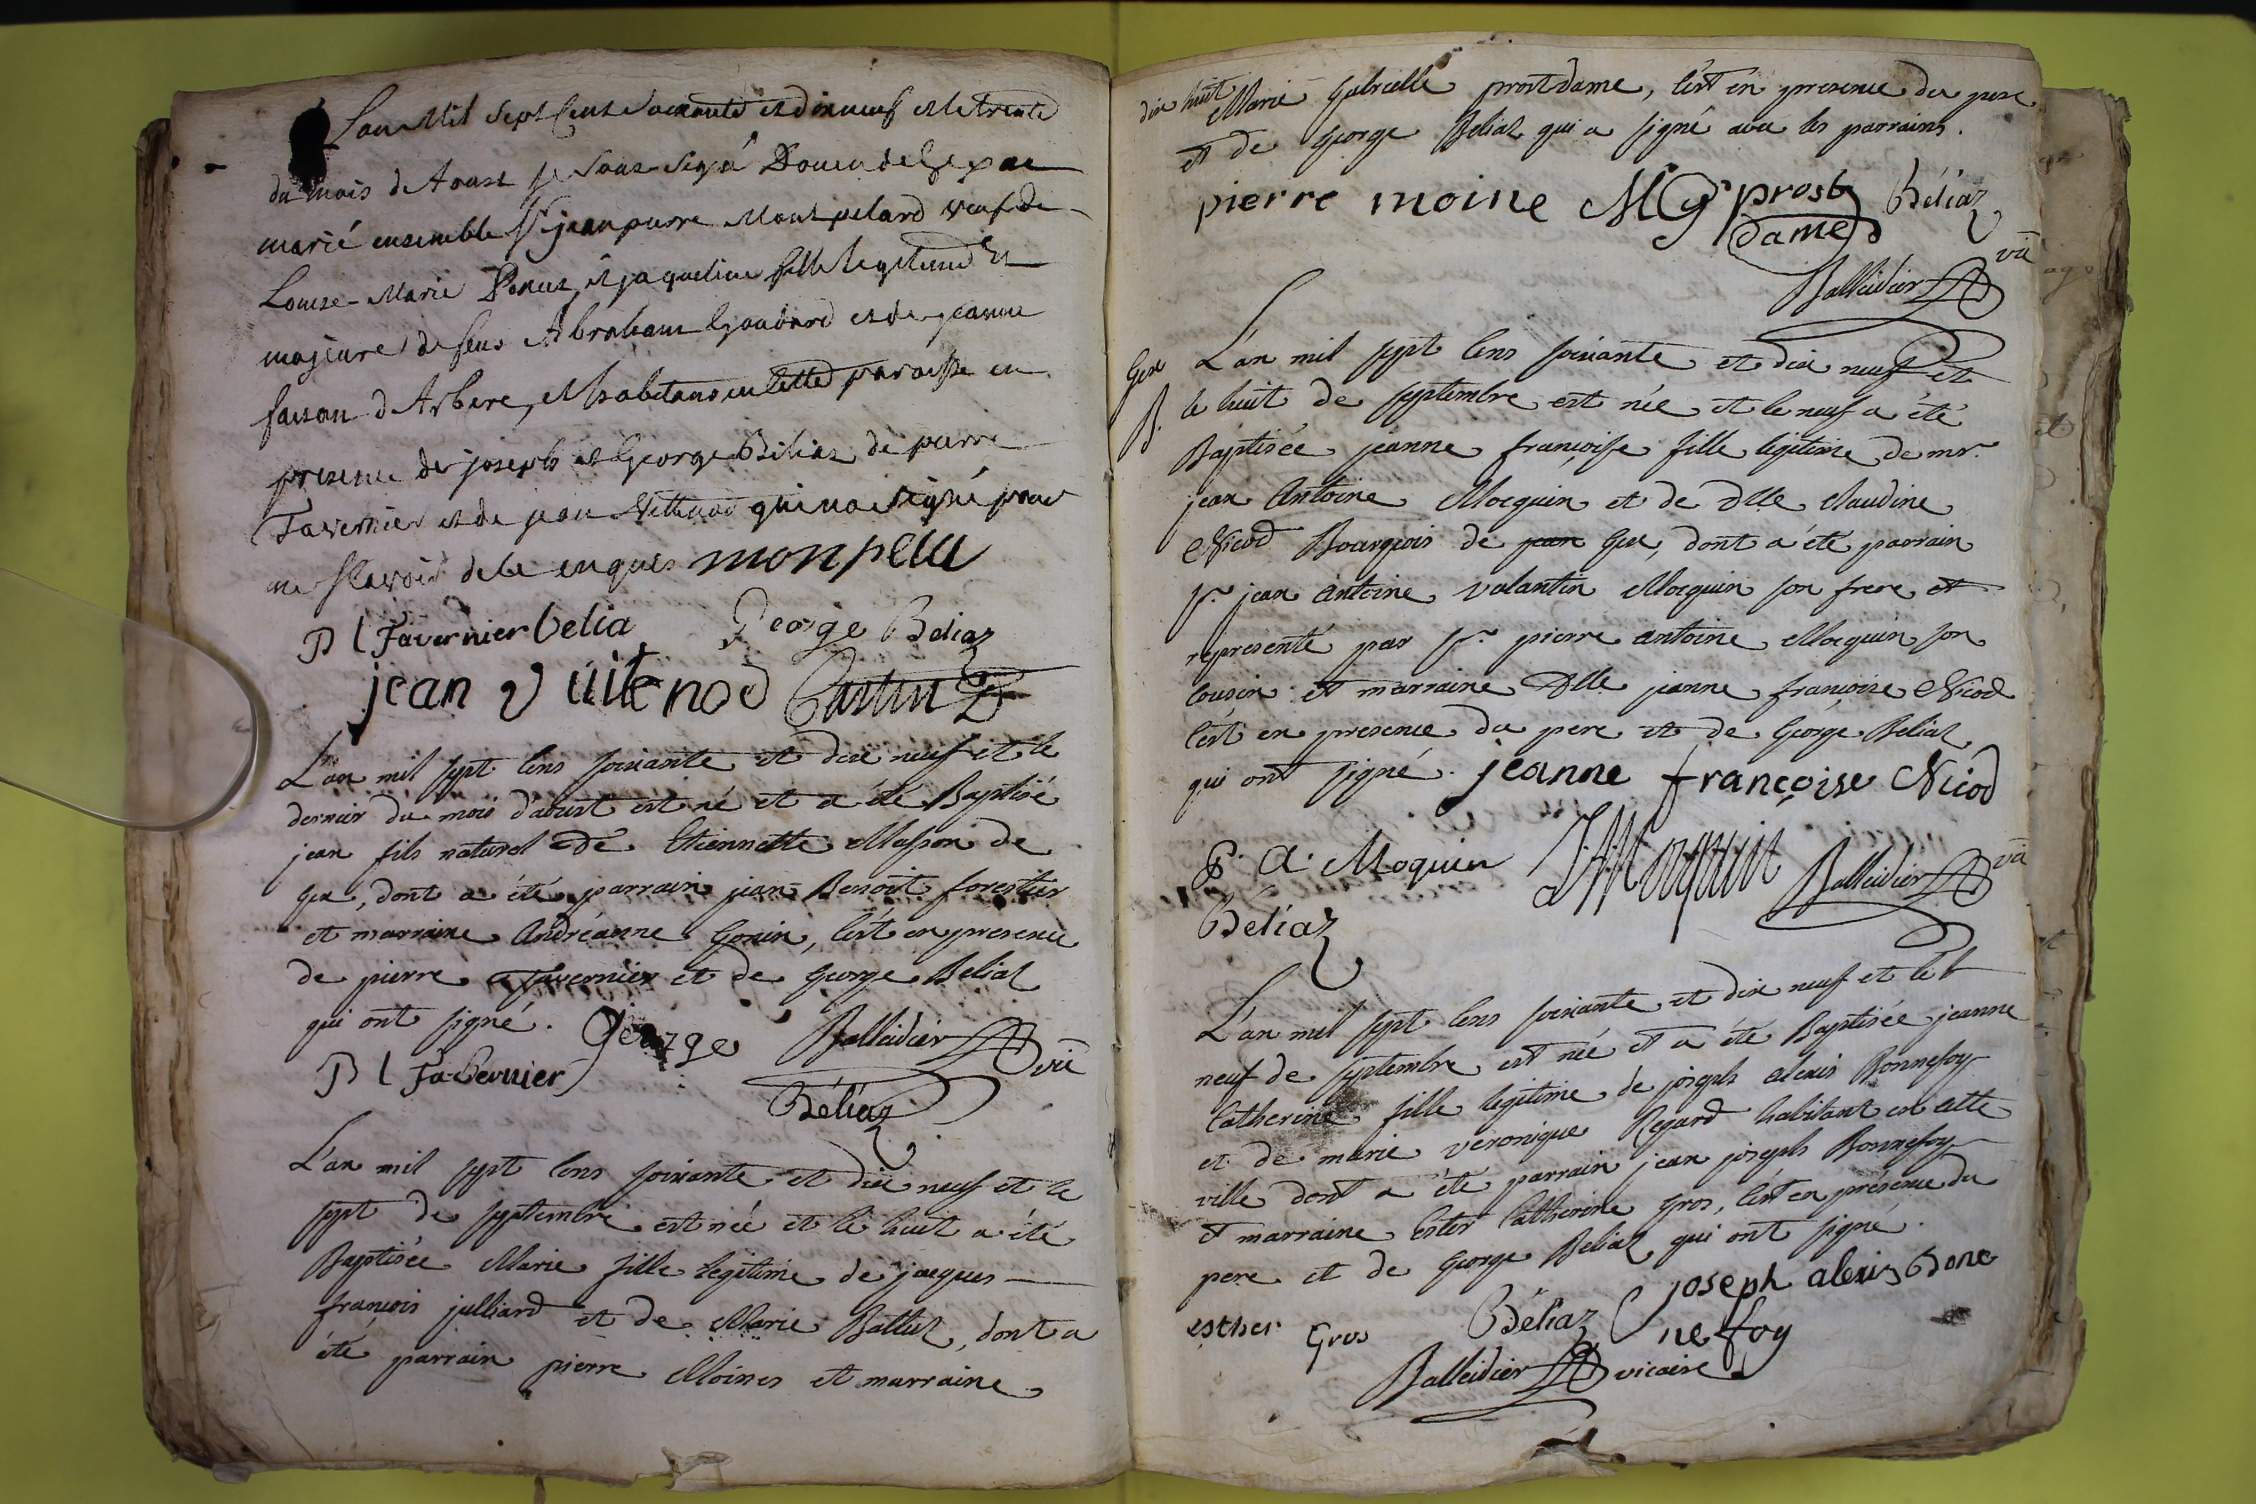 L'an Mil Sept Cent Soixante et dix neuf et le trente
du mois d'Aoust je sous-signé Doyen de Gex ai
marié ensemble Sr jean pierre Montpelard veuf de
Louise-Marie et jaqueline fille legitime et
majeure de feus Abraham Goudard et de jeanne
d'Arbere, et habitans en cette paroisse en
presence de joseph et George Béliaz de pierre
Tavernier et de jean Vuitenod qui n'a signé pour
ne sçavoir de ce enquis monpela
P l Tavernier belia George Béliaz
jean vuitenod Castin
L'an mil sept cens soixante et dix neuf et le
dernier du mois d'aoust est né et a été Baptisé
jean fils naturel de Etiennette Masson de
Gex, dont a été parrain jean Benoit forestier
et marraine Andréanne Gonin, c'est en presence
de pierre tavernier et de George Béliaz
qui ont signé. George Balleidier vic
P l Tavernier Béliaz
L'an mil sept cens soixante et dix neuf et le
sept de septembre est née et le huit a été
Baptisée Marie fille legitime de jacques
françois julliard et de Marie Ballet, dont a
été parrain pierre Moines et marraine
dix huit Marie Gabrielle prostdame, c'est en presence du pere
et de George Béliaz qui a signé avec les parrains.
pierre moine M G prost Béliaz
dame
Balleidier vic
Gex L'an mil sept cens soixante et dix neuf et
B. le huit de septembre est née et le neuf a été
Baptisée jeanne françoise fille legitime de mr.
jean Antoine Mocquin et de Dlle Claudine
Nicod Bourgeois de jean Gex, dont a été parrain
Sr. jean Antoine valantin Mocquin son frere et
representé par Sr. pierre antoine Mocquin son
cousin et marraine Dlle jeanne françoise Nicod
c'est en presence du pere et de George Béliaz
qui ont signé. jeanne françoise Nicod
P. A. Moquin J A Mocquin Balleidier vic
Béliaz
L'an mil sept cens soixante et dix neuf et le
neuf de septembre est née et a été Baptisée jeanne
Catherine fille legitime de joseph alexis Bonnefoy
et de marie veronique Regard habitant en cette
ville dont a été parrain jean joseph Bonnefoy
et marraine Ester Catherine Gros, c'est en présence du
pere et de George Béliaz qui ont signé.
joseph alexis Bone
esther Gros Béliaz nefoy
Balleidier vicaire